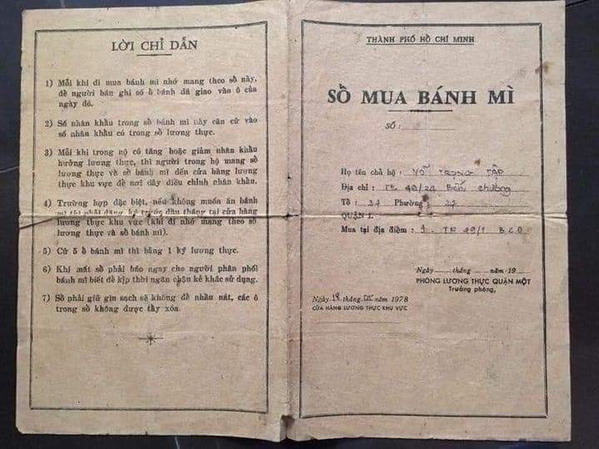 LỜI CHỈ DẪN
1) Mỗi khi đi mua bánh mì nhớ mang theo sổ này,
để người bán ghi số ổ bánh đã giao vào ô của
ngày đó.
2) Số nhân khẩu trong sổ bánh mì này căn cứ vào
số nhân khẩu có trong sổ lương thực.
3) Mỗi khi trong nọ có tăng hoặc giảm nhân khẩu
hưởng lương thực, thì người trong hộ mang sổ
lương thực và sổ bánh mì đến cửa hàng lương
thực khu vực để nơi đây điều chỉnh nhân khẩu.
4) Trường hợp đặc biệt, nếu không muốn ăn bánh
mì thì phải đăng ký trước đầu tháng tại cửa hàng
lương thực khu vực (khi đi nhớ mang theo sổ
lương thực và sổ bánh mì).
5) Cứ 5 ổ bánh mì thì bằng 1 ký lương thực.
6) Khi mất sổ phải báo ngay cho người phân phối
bánh mì biết để kịp thời ngăn chặn kẻ khác sử dụng.
7) Sổ phải giữ gìn sạch sẽ không để nhầu nát, các ô
trong sổ không được tẩy xóa.
THÀNH PHỐ HỒ CHÍ MINH
SỔ MUA BÁNH MÌ
SỐ:
Họ tên chủ hộ : VÕ TRỌNG TẬP
Địa chỉ : TK 49/24 Bến Chương
Tổ : 24 Phường : 22
QUẬN I.
Mua tại địa điểm : 9 TK 49/1 BCD
Ngày tháng năm 19
PHÒNG LƯƠNG THỰC QUẬN MỘT
Trưởng phòng,
Ngày 18 tháng năm 1978
CỬA HÀNG LƯƠNG THỰC KHU VỰC